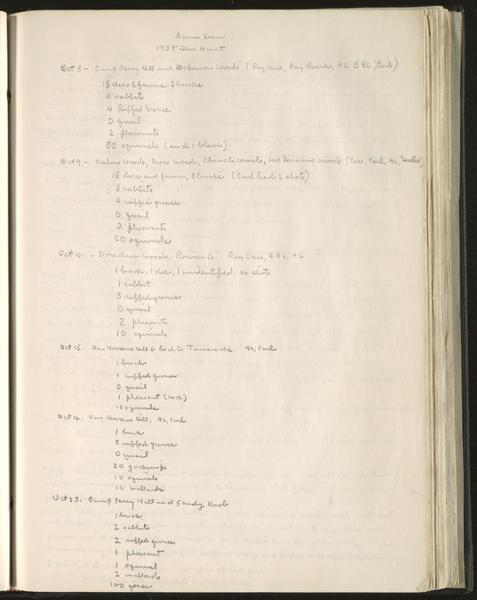 Game Seen
1938 Deer Hunt
Oct 8 - Camp Perry Hill and McGowan Woods (Ray, Ray, AL, EBL, Carl)
15 does & fawns 2 bucks
0 rabbits
4 Ruffed Grouse
0 quail
2 pheasants
80 squirrels (and 1 black)
Oct 9 - Woods, Woods, Church Woods, Woods (Carl, AL,
15 does and fawns, 3 bucks (Carl had 2 shots)
3 rabbits
4 ruffed grouse
0 quail
2 pheasants
50 squirrels
Oct 10. - Woods, Ray, EBL, AL
1 buck, 1 doe, 1 unidentified. no shots
1 rabbit
3 ruffed grouse
0 quail
2 pheasants
10 squirrels
Oct 15. Hill to Tamaracks. AL, Carl
1 buck
1 ruffed grouse
0 quail
1 pheasant
10 squirrels
Hill, AL, Carl
1 buck
3 ruffed grouse
0 quail
20
10 squirrels
10 mallards
Oct 23. Camp Perry Hill and Sandy Knob
1 buck
2 rabbits
2 ruffed grouse
1 pheasant
1 squirrel
2 mallards
100 geese